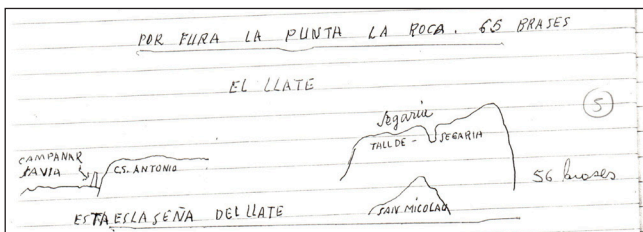 POR FURA LA PUNTA LA ROCA. 65 BRASES
EL LLATE
5
Segaria
TALL DE - SEGARIA
CAMPANAR
XAVIA
CS. ANTONIO
56 brases
ESTA ES LA SEÑA DEL LLATE
SAN NICOLAU